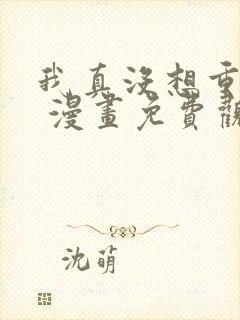 我真没想重
漫畫免費觀
沈萌